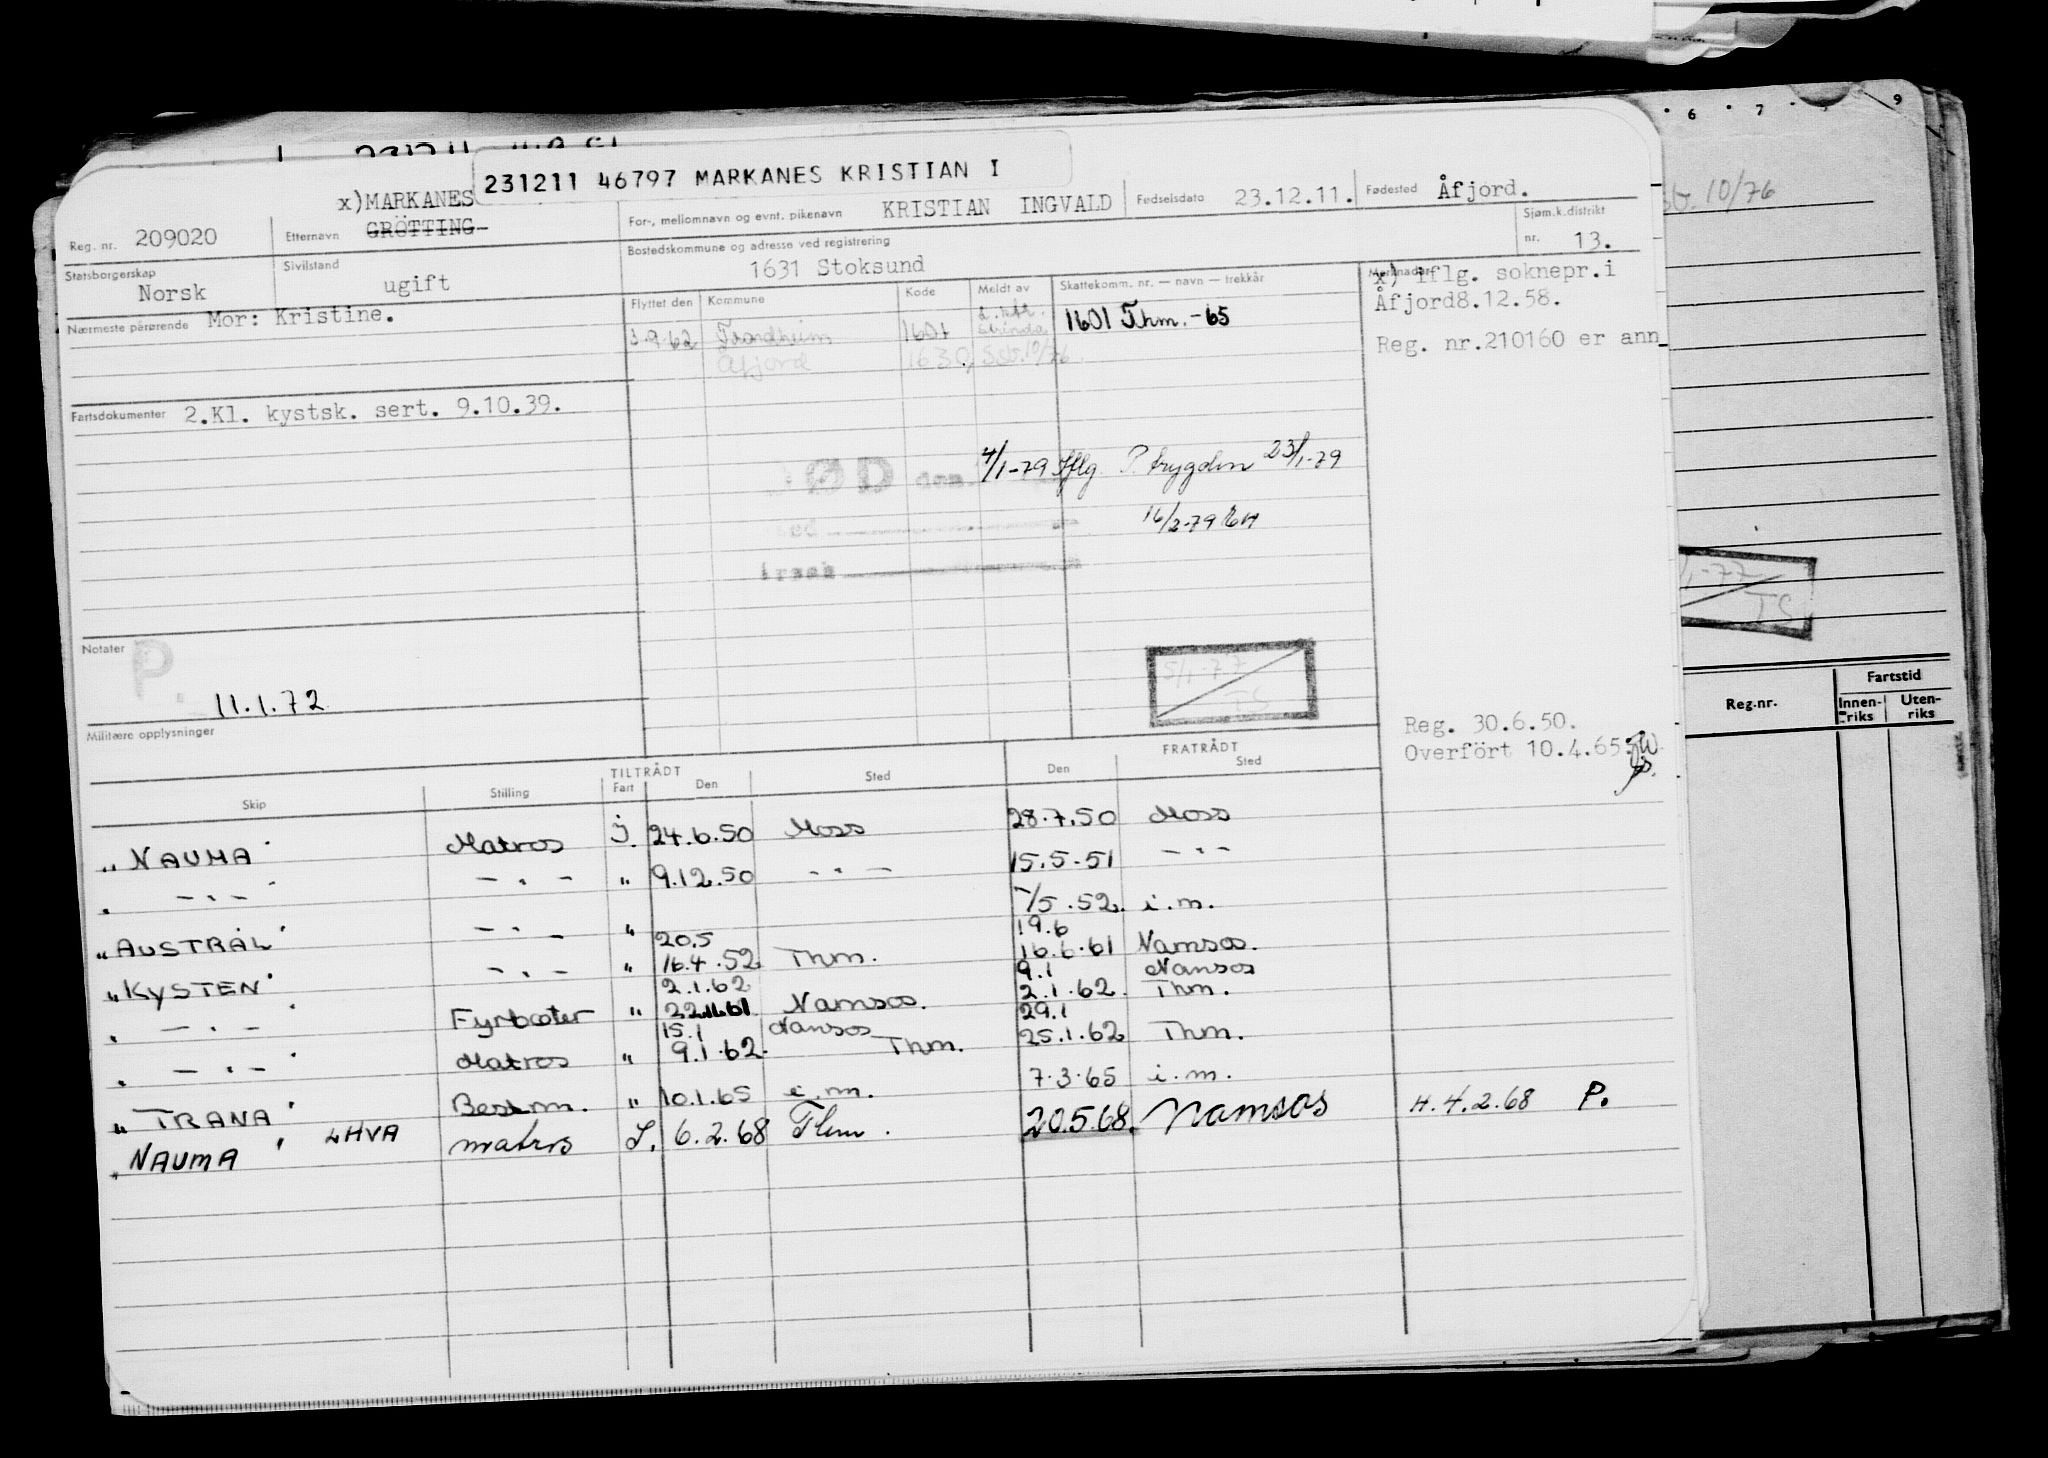 231211 46797 MARKANES KRISTIAN I
x)MARKANES
Reg. nr. 209020 Etternavn GRÖTTING For-, mellomnavn og evnt. pikenavn KRISTIAN INGVALD Fødselsdato 23.12.11. Fødested Åfjord.
Statsborgerskap Norsk Sivilstand ugift Bostedskommune og adresse ved registrering 1631 Stoksund Sjøm.k.distrikt nr. 13.
Nærmeste pårørende Mor: Kristine.
Flyttet den Kommune Kode Meldt av Skattekomm. nr. — navn — trekkår
3.9.62 Trondheim 1601 Strinda 1601 Thm.-65
Åfjord 1630, Ssb. 10/76
Merknader x) iflg. soknepr.i
Åfjord 8.12.58.
Reg. nr.210160 er ann
Fartsdokumenter 2.Kl. kystsk. sert. 9.10.39.
ØD 4/1-79 Iflg. P. trygden 23/1-79
16/2-79
Notater P. 11.1.72
5/1-77
TS
Militære opplysninger
Reg. 30.6.50.
Overfört 10.4.65
TILTRÅDT FRATRÅDT
Skip Stilling Fart Den Sted Den Sted
"NAUMA" Matros J. 24.6.50 Moss 28.7.50 Moss
" — " — — " — " 9.12.50 — " — 15.5.51 — " —
-/5.52. i.m.
"AUSTRÅL" — " — " 20.5 19.6
"KYSTEN" — " — " 16.4.52 Thm. 16.6.61 Namsos.
2.1.62 9.1 Namsos
" — " — Fyrbøter " 22.11.61 Namsos. 2.1.62. Thm.
15.1 Namsos 29.1
" — " — Matros " 9.1.62. Thm. 25.1.62 Thm.
"TRANA" Bestm. " 10.1.65 i.m. 7.3.65 i.m.
"NAUMA" LHVA matros I. 6.2.68 Thm. 20.5.68. Namsos H.4.2.68 P.
6 7 9
10/76
1-77
TS
Reg.nr. Fartstid
Innenriks Utenriks